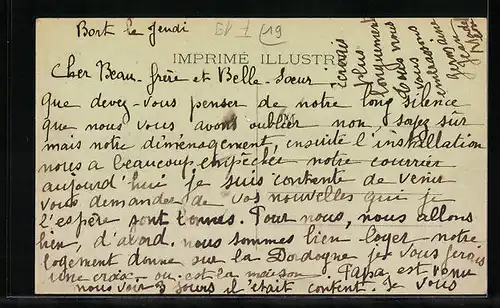 Bort le Jendi
19
IMPRIMÉ ILLUSTR
Cher Beau-frère et Belle-Sœur
que devez-vous penser de notre long silence
que nous vous avons oublier non, soyez sur
mais notre déménagement, ensuite l'installation
nous a beaucoup empêcher notre courrier
aujourd'hui je suis contente de venir
vous demander de vos nouvelles que je
l'espère sont bonnes. Pour nous, nous allons
bien, d'abord nous sommes bien loger notre
logement donne sur la Dordogne je vous ferais
une croix ou est la maison Papa est venu
nous voir 3 jours il était content. Je vous
écrirais
plus
longuement
tous nous
vous
embrassons
Germaine
Jean de